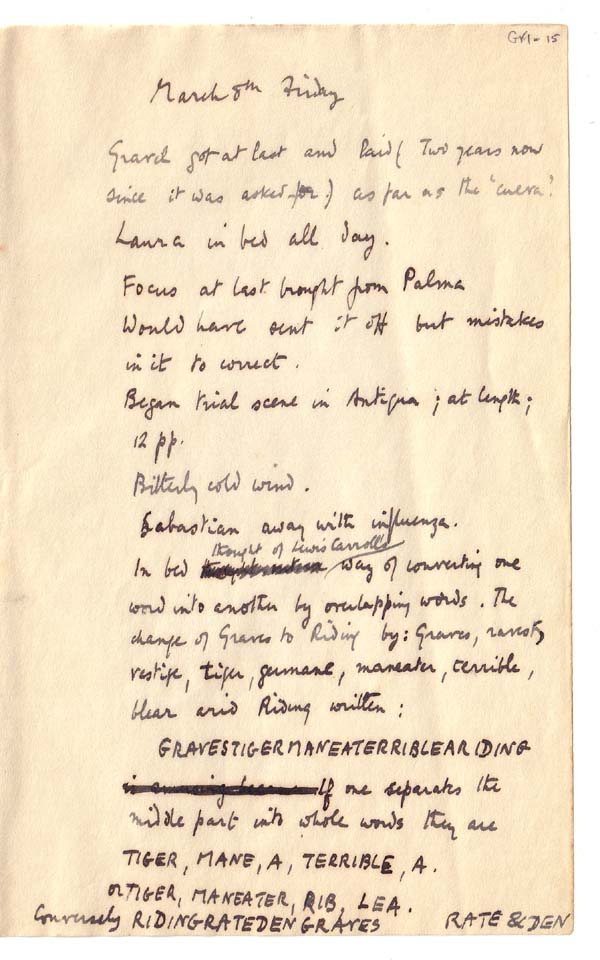 GVI-15
March 8th Friday
Gravel got at last and laid (Two years now
since it was asked for.) as far as the "cueva".
Laura in bed all day.
Focus at last brought from Palma
Would have sent it off but mistakes
in it to correct.
Began trial scene in Antigua; at length;
12 pp.
Bitterly cold wind.
Sabastian away with influenza.
thought of Lewis Carroll's
In bed way of converting one
word into another by overlapping words. The
change of Graves to Riding by: Graves, ravest,
vestige, tiger, germane, maneater, terrible,
blear arid Riding written:
GRAVESTIGERMANEATERRIBLEARIDING
If one separates the
middle part into whole words they are
TIGER, MANE, A, TERRIBLE, A.
or TIGER, MANEATER, RIB, LEA.
Conversely RIDINGRATEDENGRAVES RATE & DEN